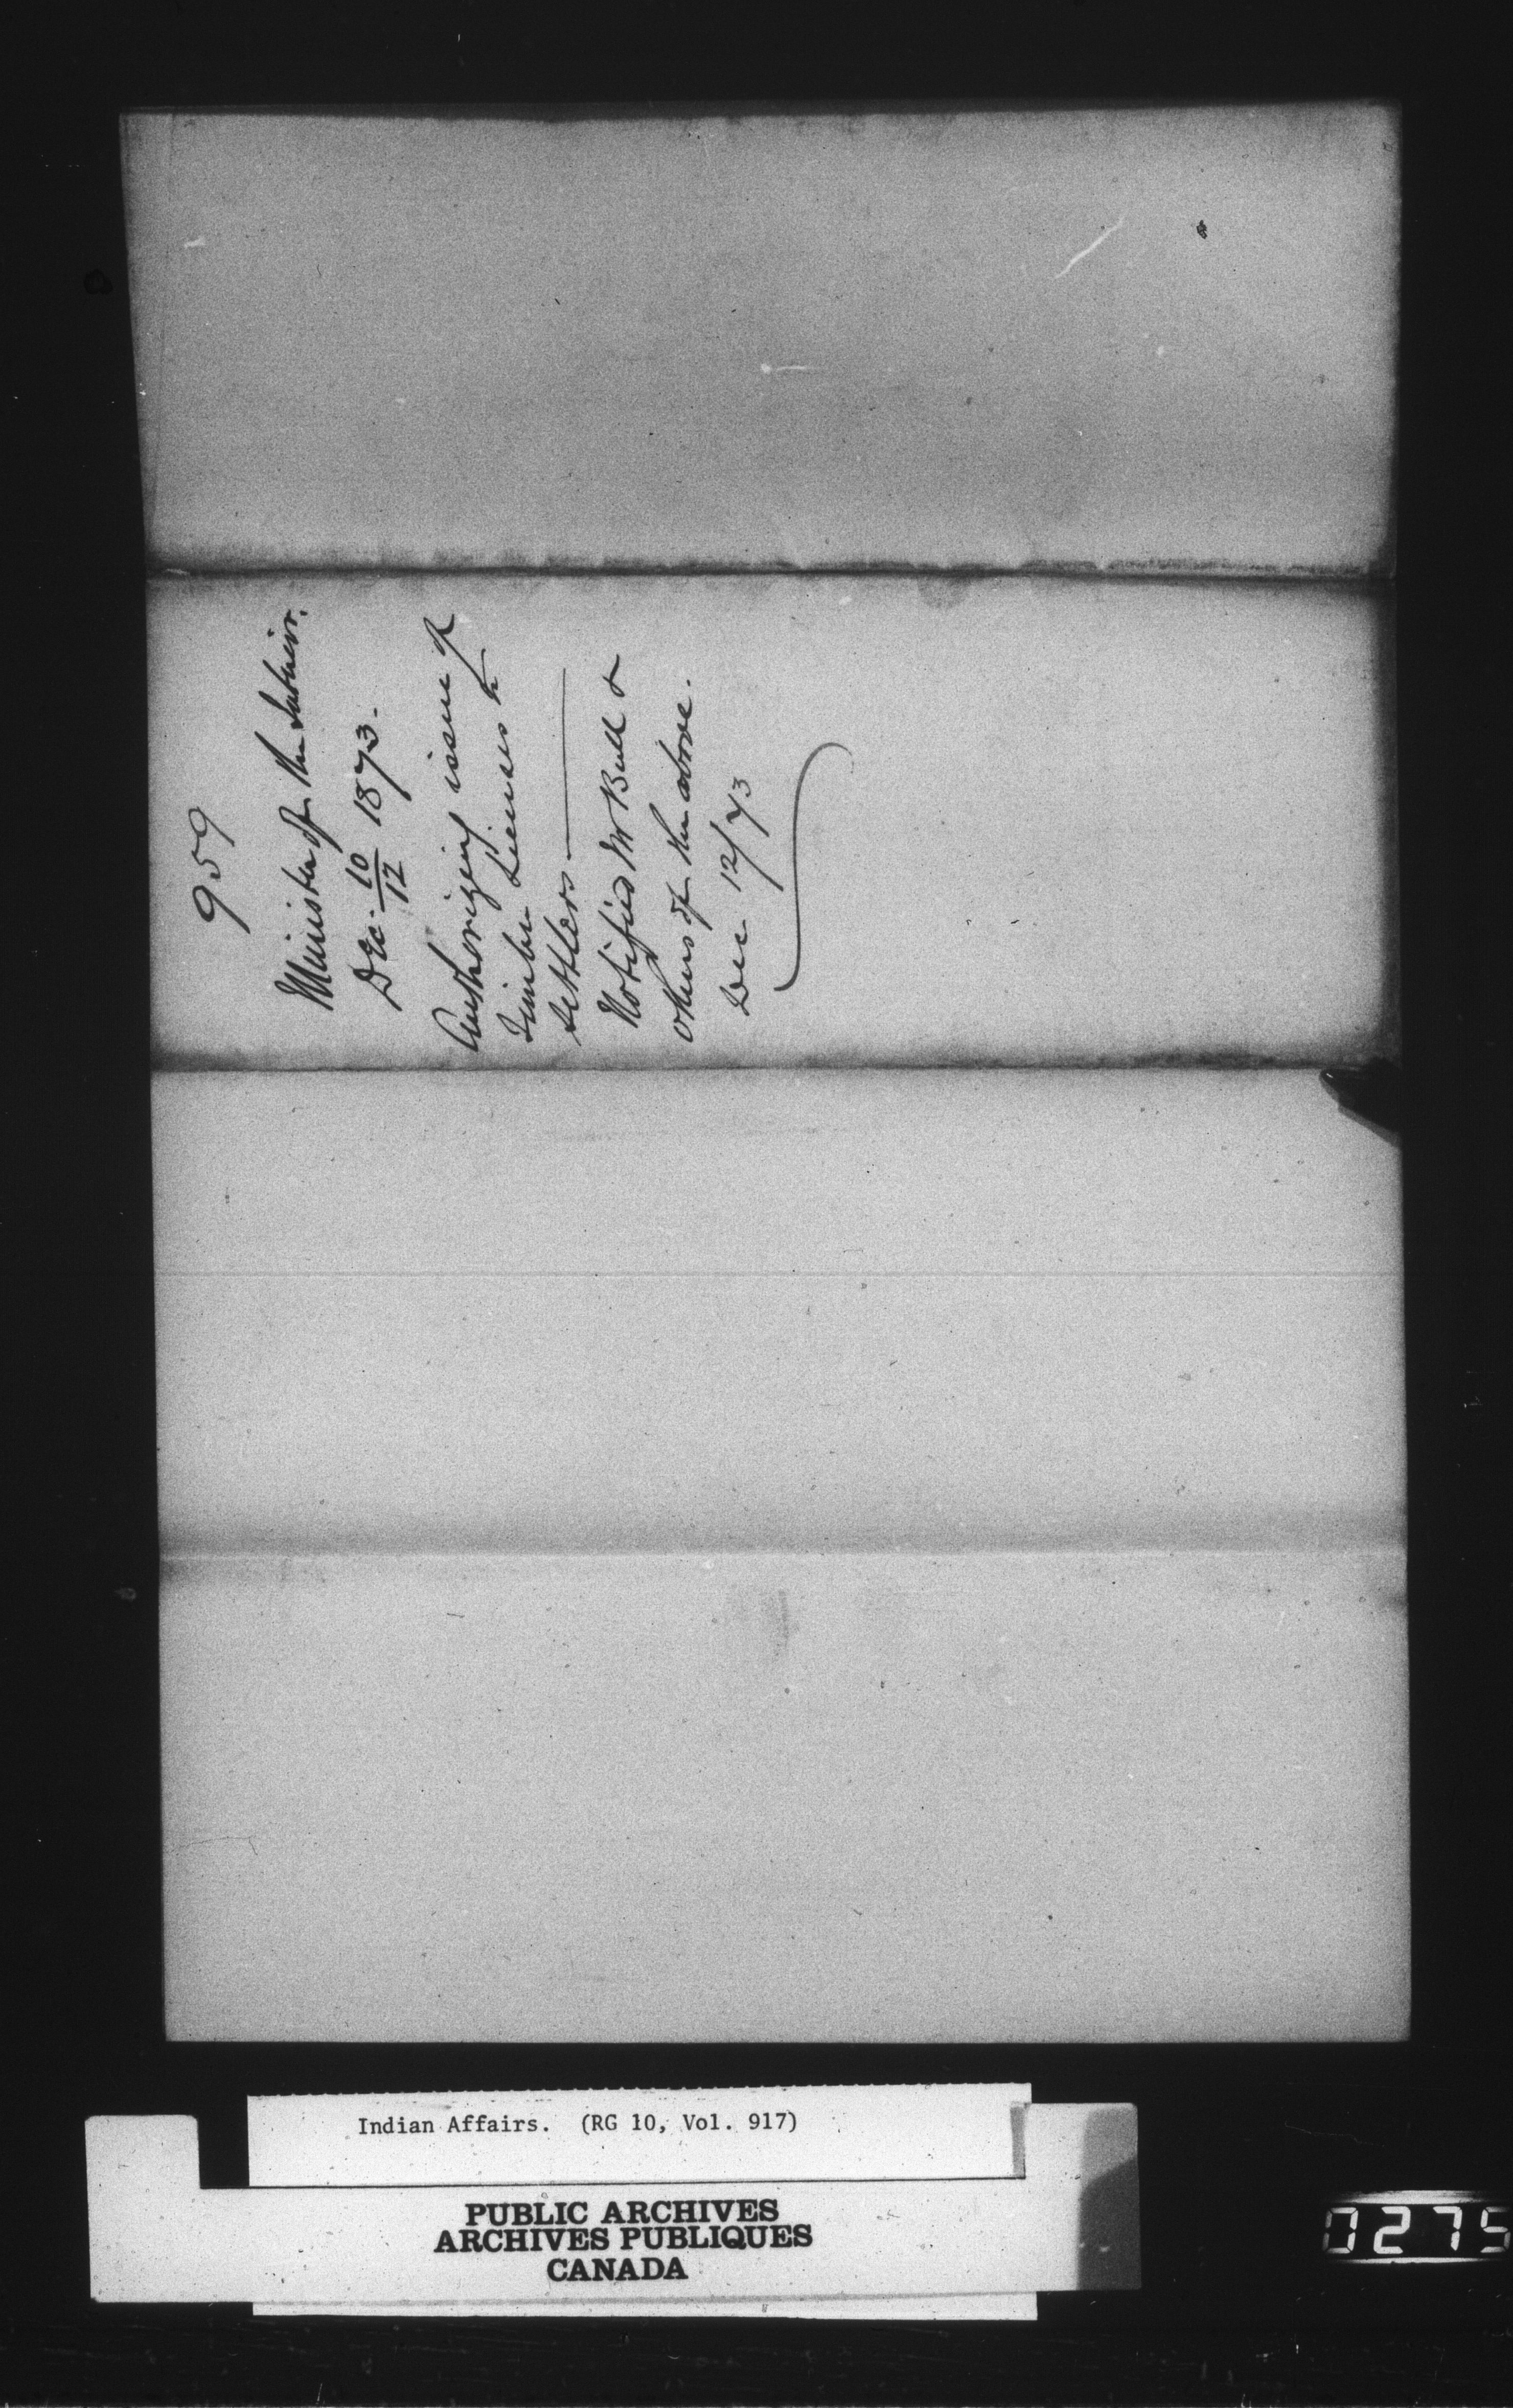 959
Minister of the Interior.
Dec. 10/12 1873.
Authorizing issue of
Timber Licenses to
settlers —
Notified Mr Bull &
others of the above.
Dec 12/73
Indian Affairs. (RG 10, Vol. 917)
PUBLIC ARCHIVES
ARCHIVES PUBLIQUES
CANADA
0275